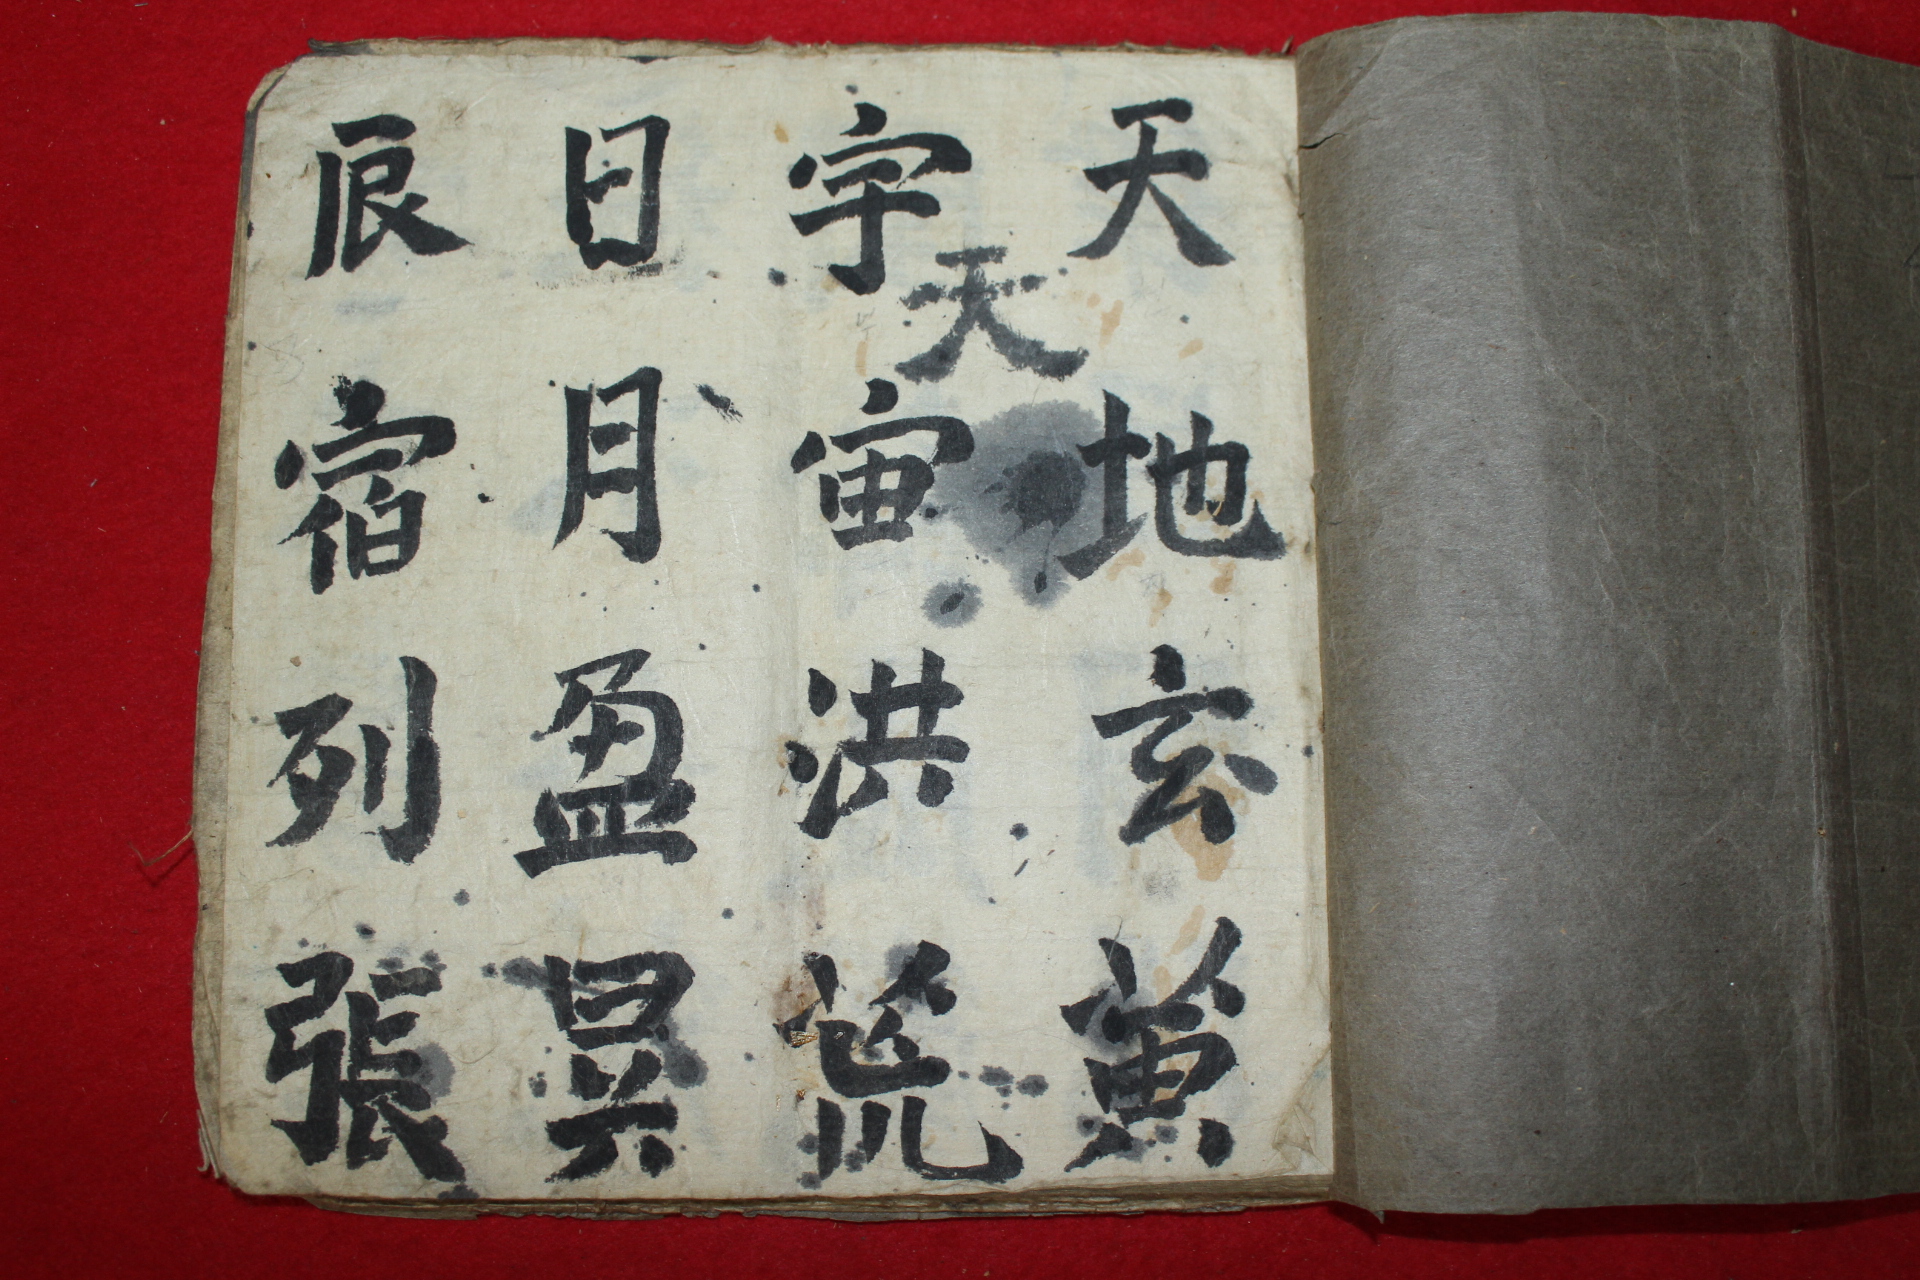 天地玄黃
天
宇宙洪荒
日月盈昃
辰宿列張